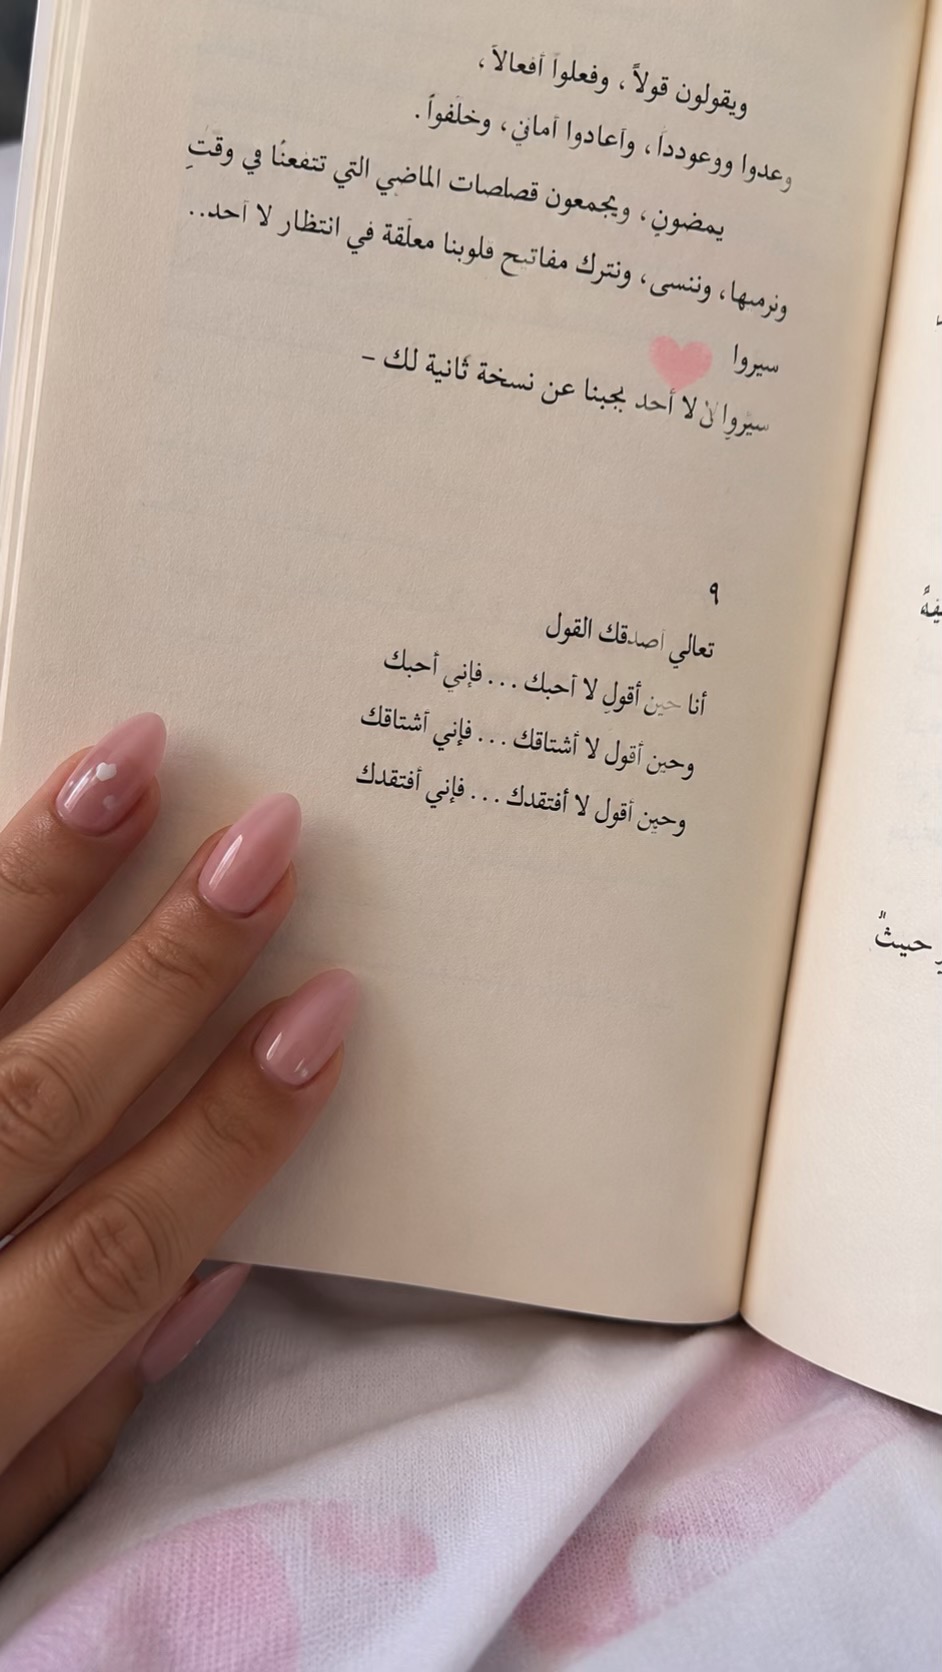 ويقولون قولاً، وفعلوا أفعالاً،
وعدوا ووعودداً، وأعادوا أماني، وخلفوا.
يمضون، ويجمعون قصلصات الماضي التي تتفعنا في وقت
ونرمبها، وننسى، ونترك مفاتيح قلوبنا معلّقة في انتظار لا أحد..
سيروا
سيروا لأن لا أحد بجبنا عن نسخة ثانية لك –
٩
تعالي أصدقك القول
أنا حين أقول لا أحبك ... فإني أحبك
وحين أقول لا أشتاقك ... فإني أشتاقك
وحين أقول لا أفتقدك ... فإني أفتقدك
حيث